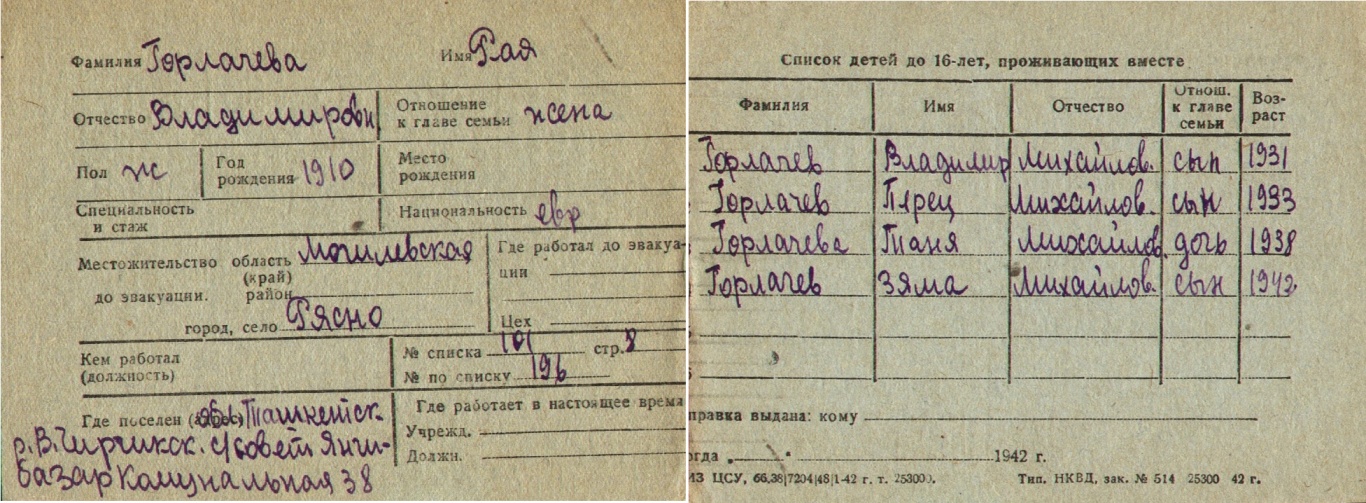 Фамилия Горлачева Имя Рая
Отчество Владимировн Отношение к главе семьи жена
Пол ж Год рождения 1910 Место рождения
Специальность и стаж Национальность евр
Местожительство до эвакуации. область (край) Могилевская Где работал до эвакуации
район
город, село Рясно Цех
Кем работал (должность) № списка 101 стр. 8
№ по списку 196
Где поселен (адрес) обл Ташкентск. Где работает в настоящее время
р. В. Чирчикск. с/совет Янги- Учрежд.
базар Комунальная 38 Должн.
Список детей до 16-лет, проживающих вместе
Фамилия Имя Отчество Отнош. к главе семьи Воз-раст
Горлачев Владимир Михайлов. сын 1931
Горлачев Перец Михайлов. сын 1933
Горлачева Таня Михайлов. дочь 1938
Горлачев Зяма Михайлов. сын 1942
правка выдана: кому
огда „ “ 1942 г.
ИЗ ЦСУ, 66,38|7204|48|1-42 г. т. 253000. Тип. НКВД, зак. № 514 25300 42 г.